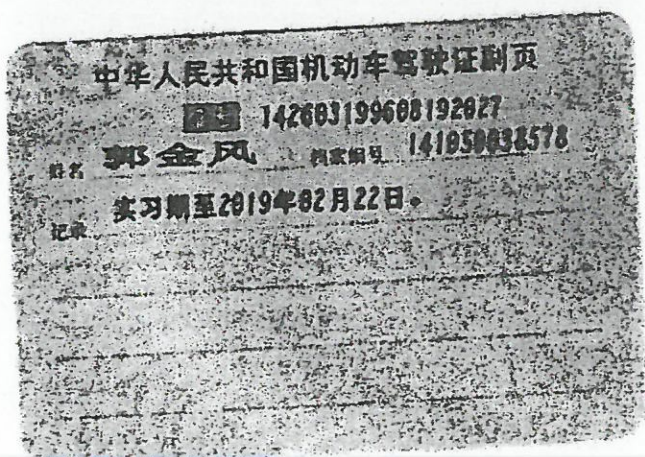 中华人民共和国机动车驾驶证副页
证号 142603199608192027
姓名 郭金凤 档案编号 141050038578
记录 实习期至2019年02月22日。